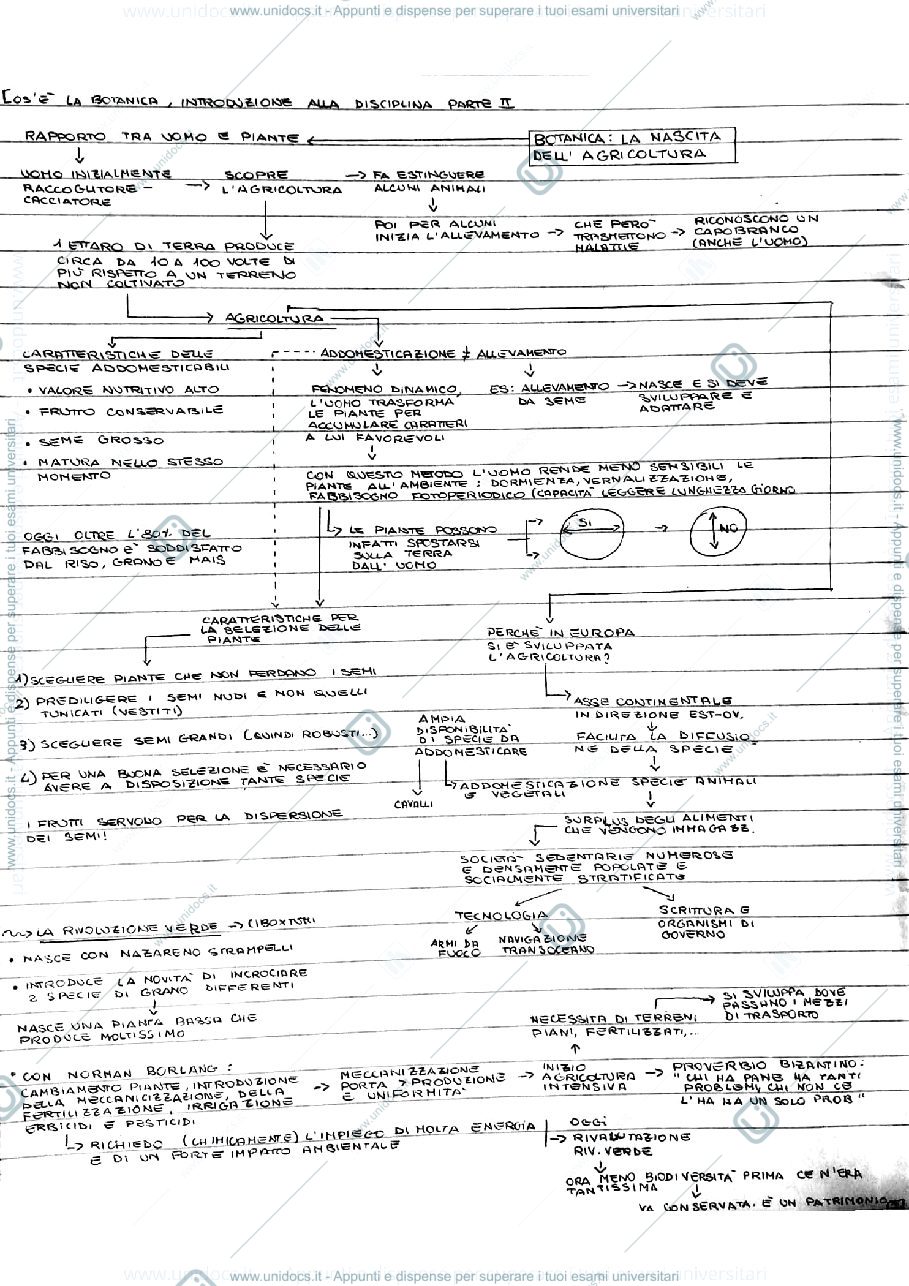 www.unidocs.it - Appunti e dispense per superare i tuoi esami universitari
COS'È LA BOTANICA, INTRODUZIONE ALLA DISCIPLINA PARTE II
RAPPORTO TRA UOMO E PIANTE
BOTANICA: LA NASCITA
DELL'AGRICOLTURA
UOMO INIZIALMENTE
RACCOGLITORE -
CACCIATORE
SCOPRE
L'AGRICOLTURA
FA ESTINGUERE
ALCUNI ANIMALI
POI PER ALCUNI
INIZIA L'ALLEVAMENTO
CHE PERÒ
TRASMETTONO
MALATTIE
RICONOSCONO UN
CAPOBRANCO
(ANCHE L'UOMO)
1 ETTARO DI TERRA PRODUCE
CIRCA DA 10 A 100 VOLTE DI
PIÙ RISPETTO A UN TERRENO
NON COLTIVATO
AGRICOLTURA
CARATTERISTICHE DELLE
SPECIE ADDOMESTICABILI
• VALORE NUTRITIVO ALTO
• FRUTTO CONSERVABILE
• SEME GROSSO
• MATURA NELLO STESSO
MOMENTO
OGGI OLTRE L'80% DEL
FABBISOGNO È SODDISFATTO
DAL RISO, GRANO E MAIS
ADDOMESTICAZIONE ≠ ALLEVAMENTO
FENOMENO DINAMICO,
L'UOMO TRASFORMA
LE PIANTE PER
ACCUMULARE CARATTERI
A LUI FAVOREVOLI
ES: ALLEVAMENTO
DA SEME
NASCE E SI DEVE
SVILUPPARE E
ADATTARE
CON QUESTO METODO L'UOMO RENDE MENO SENSIBILI LE
PIANTE ALL'AMBIENTE: DORMIENZA, VERNALIZZAZIONE,
FABBISOGNO FOTOPERIODICO (CAPACITÀ LEGGERE LUNGHEZZA GIORNO
LE PIANTE POSSONO
INFATTI SPOSTARSI
SULLA TERRA
DALL'UOMO
SI
NO
CARATTERISTICHE PER
LA SELEZIONE DELLE
PIANTE
1) SCEGLIERE PIANTE CHE NON PERDANO I SEMI
2) PREDILIGERE I SEMI NUDI E NON QUELLI
TUNICATI (VESTITI)
3) SCEGLIERE SEMI GRANDI (QUINDI ROBUSTI...)
4) PER UNA BUONA SELEZIONE È NECESSARIO
AVERE A DISPOSIZIONE TANTE SPECIE
I FRUTTI SERVONO PER LA DISPERSIONE
DEI SEMI!
PERCHÈ IN EUROPA
SI È SVILUPPATA
L'AGRICOLTURA?
ASSE CONTINENTALE
IN DIREZIONE EST-OV.
FACILITA LA DIFFUSIO_
NE DELLA SPECIE
AMPIA
DISPONIBILITÀ
DI SPECIE DA
ADDOMESTICARE
CAVALLI
ADDOMESTICAZIONE SPECIE ANIMALI
E VEGETALI
SURPLUS DEGLI ALIMENTI
CHE VENGONO IMMAGAZZ.
SOCIETÀ SEDENTARIE NUMEROSE
E DENSAMENTE POPOLATE E
SOCIALMENTE STRATIFICATE
TECNOLOGIA
ARMI DA
FUOCO
NAVIGAZIONE
TRANSOCEANO
SCRITTURA E
ORGANISMI DI
GOVERNO
LA RIVOLUZIONE VERDE
• NASCE CON NAZARENO STRAMPELLI
• INTRODUCE LA NOVITÀ DI INCROCIARE
2 SPECIE DI GRANO DIFFERENTI
NASCE UNA PIANTA BASSA CHE
PRODUCE MOLTISSIMO
• CON NORMAN BORLANG:
CAMBIAMENTO PIANTE, INTRODUZIONE
DELLA MECCANICIZZAZIONE, DELLA
FERTILIZZAZIONE, IRRIGAZIONE
ERBICIDI E PESTICIDI
MECCANIZZAZIONE
PORTA > PRODUZIONE
E UNIFORMITÀ
INIZIO
AGRICOLTURA
INTENSIVA
NECESSITA DI TERRENI
PIANI, FERTILIZZATI,...
SI SVILUPPA DOVE
PASSANO I MEZZI
DI TRASPORTO
PROVERBIO BIZANTINO:
"CHI HA PANE HA TANTI
PROBLEMI, CHI NON CE
L'HA HA UN SOLO PROB"
RICHIEDO (CHIMICAMENTE) L'IMPIEGO DI MOLTA ENERGIA
E DI UN FORTE IMPATTO AMBIENTALE
OGGI
RIVALUTAZIONE
RIV. VERDE
ORA MENO BIODIVERSITÀ PRIMA CE N'ERA
TANTISSIMA
VA CONSERVATA. È UN PATRIMONIO
www.unidocs.it - Appunti e dispense per superare i tuoi esami universitari